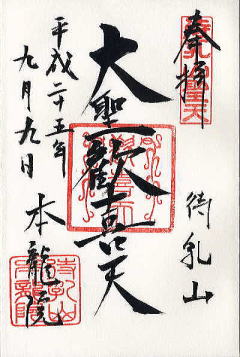 奉拝
待乳山
大聖歓喜天
平成二十五年
九月九日
本龍院